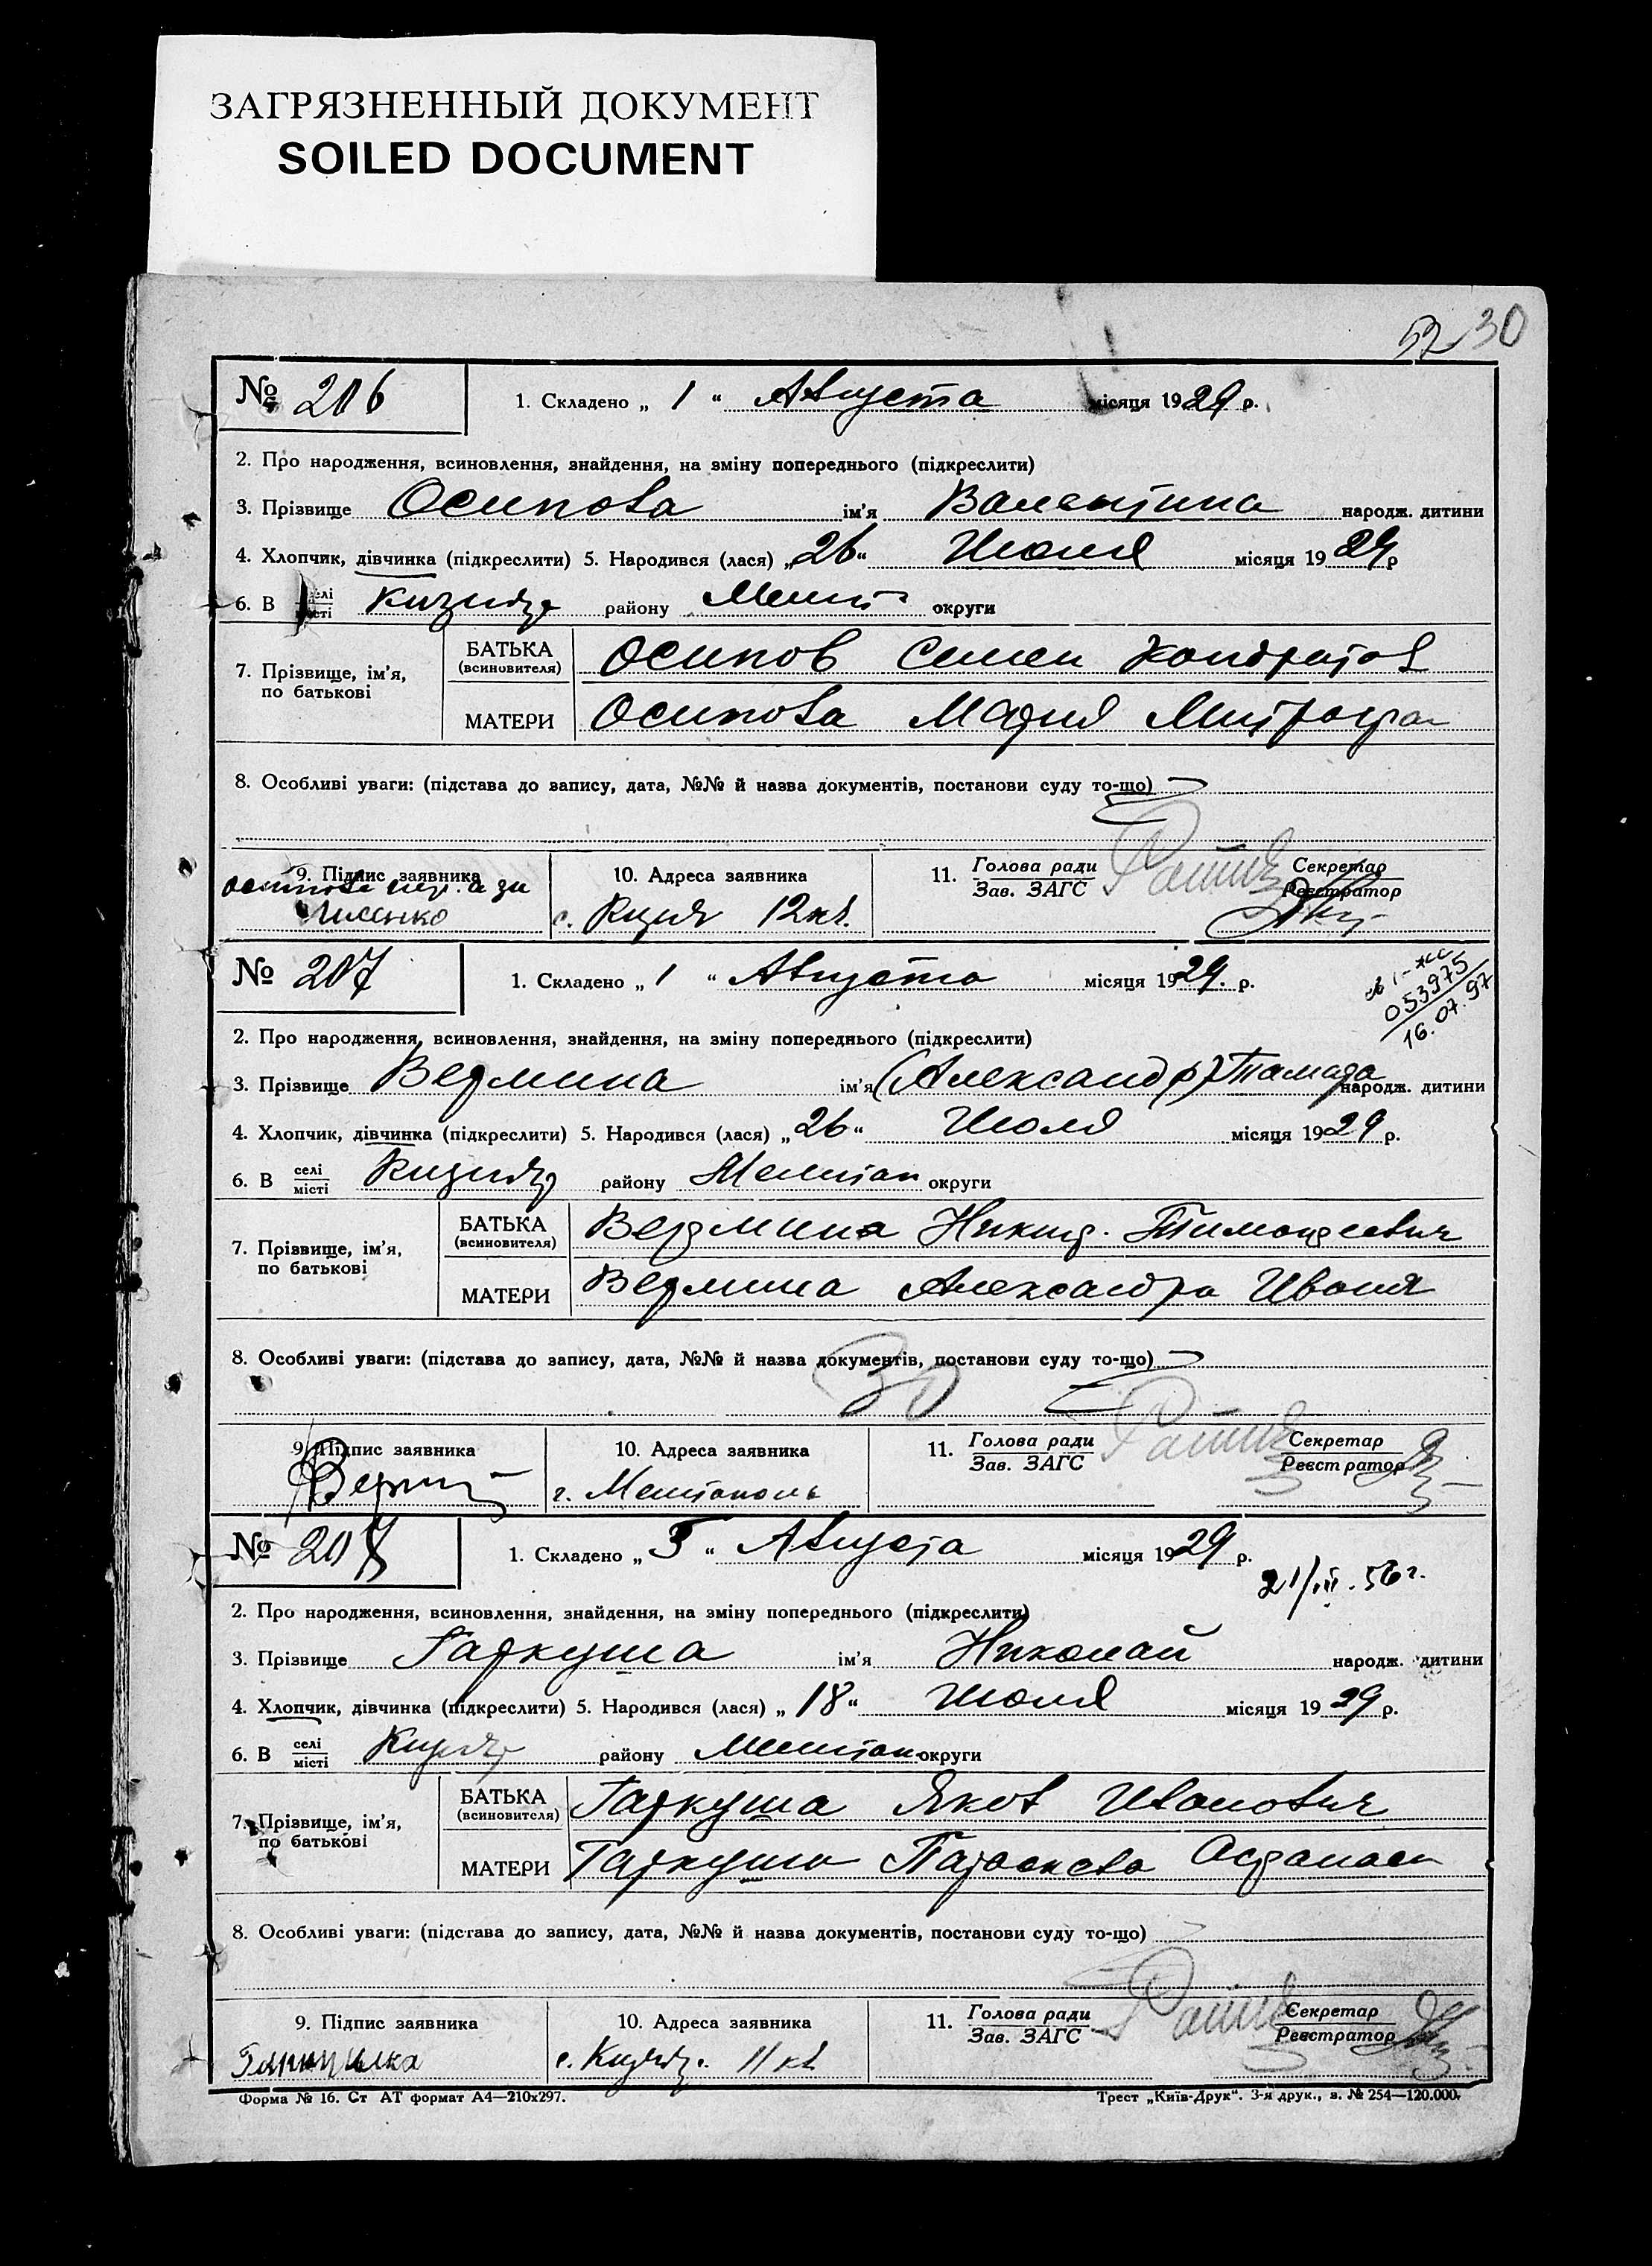 ЗАГРЯЗНЕННЫЙ ДОКУМЕНТ
SOILED DOCUMENT
30
№ 206 1. Складено „ 1 “ Августа місяця 1929 р.
2. Про народження, всиновлення, знайдення, на зміну попереднього (підкреслити)
3. Прізвище Осипова ім'я Валентина народж. дитини
4. Хлопчик, дівчинка (підкреслити) 5. Народився (лася) „26“ Июля місяця 1929 р
6. В селі місті району Мелит округи
7. Прізвище, ім'я, по батькові
БАТЬКА (всиновителя) Осипов Семен Кондратов
МАТЕРИ Осипова Мария Митрофан
8. Особливі уваги: (підстава до запису, дата, №№ й назва документів, постанови суду то-що)
9. Підпис заявника 10. Адреса заявника 11. Голова ради Секретар
Зав. ЗАГС Реєстратор
Лисенко с. 12 кв.
№ 207 1. Складено „ 1 “ Августа місяця 1929. р.
053975
16.07.97
2. Про народження, всиновлення, знайдення, на зміну попереднього (підкреслити)
3. Прізвище Вермина ім'я (Александр) Тамара народж. дитини
4. Хлопчик, дівчинка (підкреслити) 5. Народився (лася) „26“ Июля місяця 1929 р.
6. В селі місті району Мелитоп округи
7. Прізвище, ім'я, по батькові
БАТЬКА (всиновителя) Вермина Никиф. Тимофеевич
МАТЕРИ Вермина Александра Иван
8. Особливі уваги: (підстава до запису, дата, №№ й назва документів, постанови суду то-що)
30
9. Підпис заявника 10. Адреса заявника 11. Голова ради Секретар
Зав. ЗАГС Реєстратор
г. Мелитополь
№ 208 1. Складено „ 5 “ Августа місяця 1929 р.
2. Про народження, всиновлення, знайдення, на зміну попереднього (підкреслити)
3. Прізвище Гаркуша ім'я Николай народж. дитини
4. Хлопчик, дівчинка (підкреслити) 5. Народився (лася) „18“ Июля місяця 1929 р.
6. В селі місті району Мелитоп округи
7. Прізвище, ім'я, по батькові
БАТЬКА (всиновителя) Гаркуша Яков Иванович
МАТЕРИ Гаркуша Параскева Афанаси
8. Особливі уваги: (підстава до запису, дата, №№ й назва документів, постанови суду то-що)
9. Підпис заявника 10. Адреса заявника 11. Голова ради Секретар
Зав. ЗАГС Реєстратор
с. 11 кв
Форма № 16. Ст АТ формат А4—210x297. Трест „Київ-Друк“. 3-я друк., з. № 254—120.000.